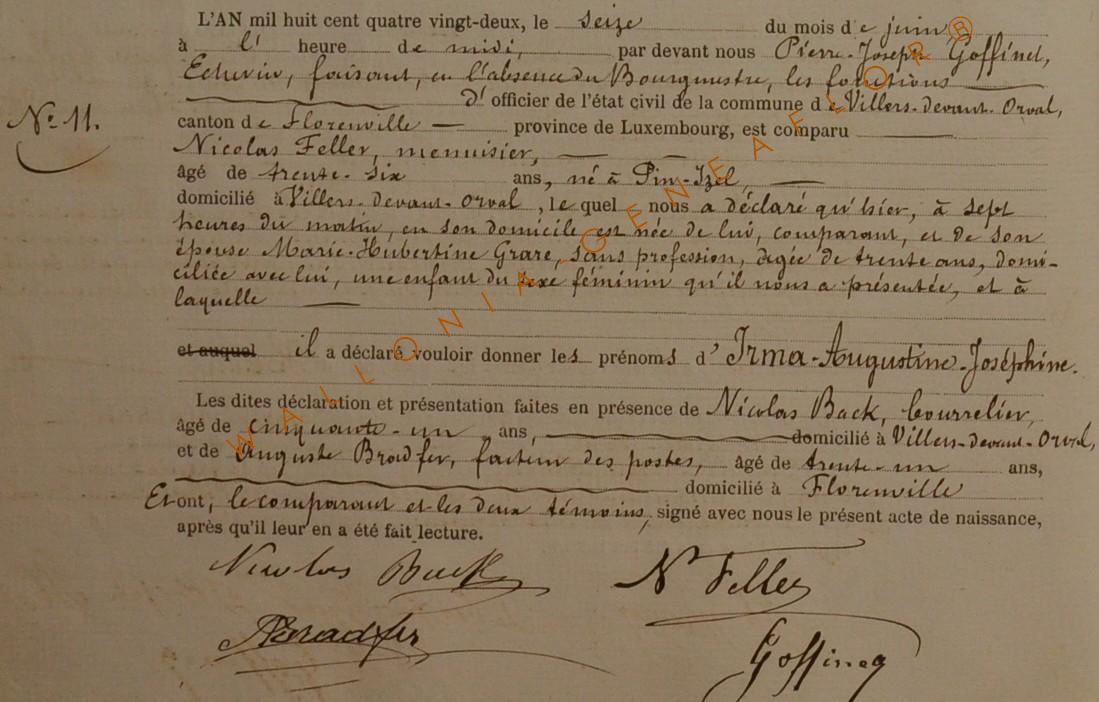 L'AN mil huit cent quatre vingt-deux, le seize du mois de juin
à l' heure de midi, par devant nous Pierre-Joseph Goffinet,
Echevin, faisant, en l'absence du Bourgmestre, les fonctions
d'officier de l'état civil de la commune de Villers-devant-Orval,
N° 11.
canton de Florenville — province de Luxembourg, est comparu
Nicolas Feller, menuisier, —
âgé de trente-six ans, né à Pin-Izel, —
domicilié à Villers-devant-Orval, lequel nous a déclaré qu'hier, à sept
heures du matin, en son domicile est née de lui, comparant, et de son
épouse Marie-Hubertine Grare, sans profession, âgée de trente ans, domi-
ciliée avec lui, une enfant du sexe féminin qu'il nous a présentée, et à
laquelle —
et auquel il a déclaré vouloir donner les prénoms d'Irma-Augustine-Joséphine.
Les dites déclaration et présentation faites en présence de Nicolas Back, bourrelier,
âgé de cinquante-un ans, domicilié à Villers-devant-Orval,
et de Auguste Bradfer, facteur des postes, âgé de trente-un ans,
domicilié à Florenville
Et ont, le comparant et les deux témoins, signé avec nous le présent acte de naissance,
après qu'il leur en a été fait lecture.
Nicolas Back N Feller
ABradfer
Goffinet
WALLONIA GENEALOR®